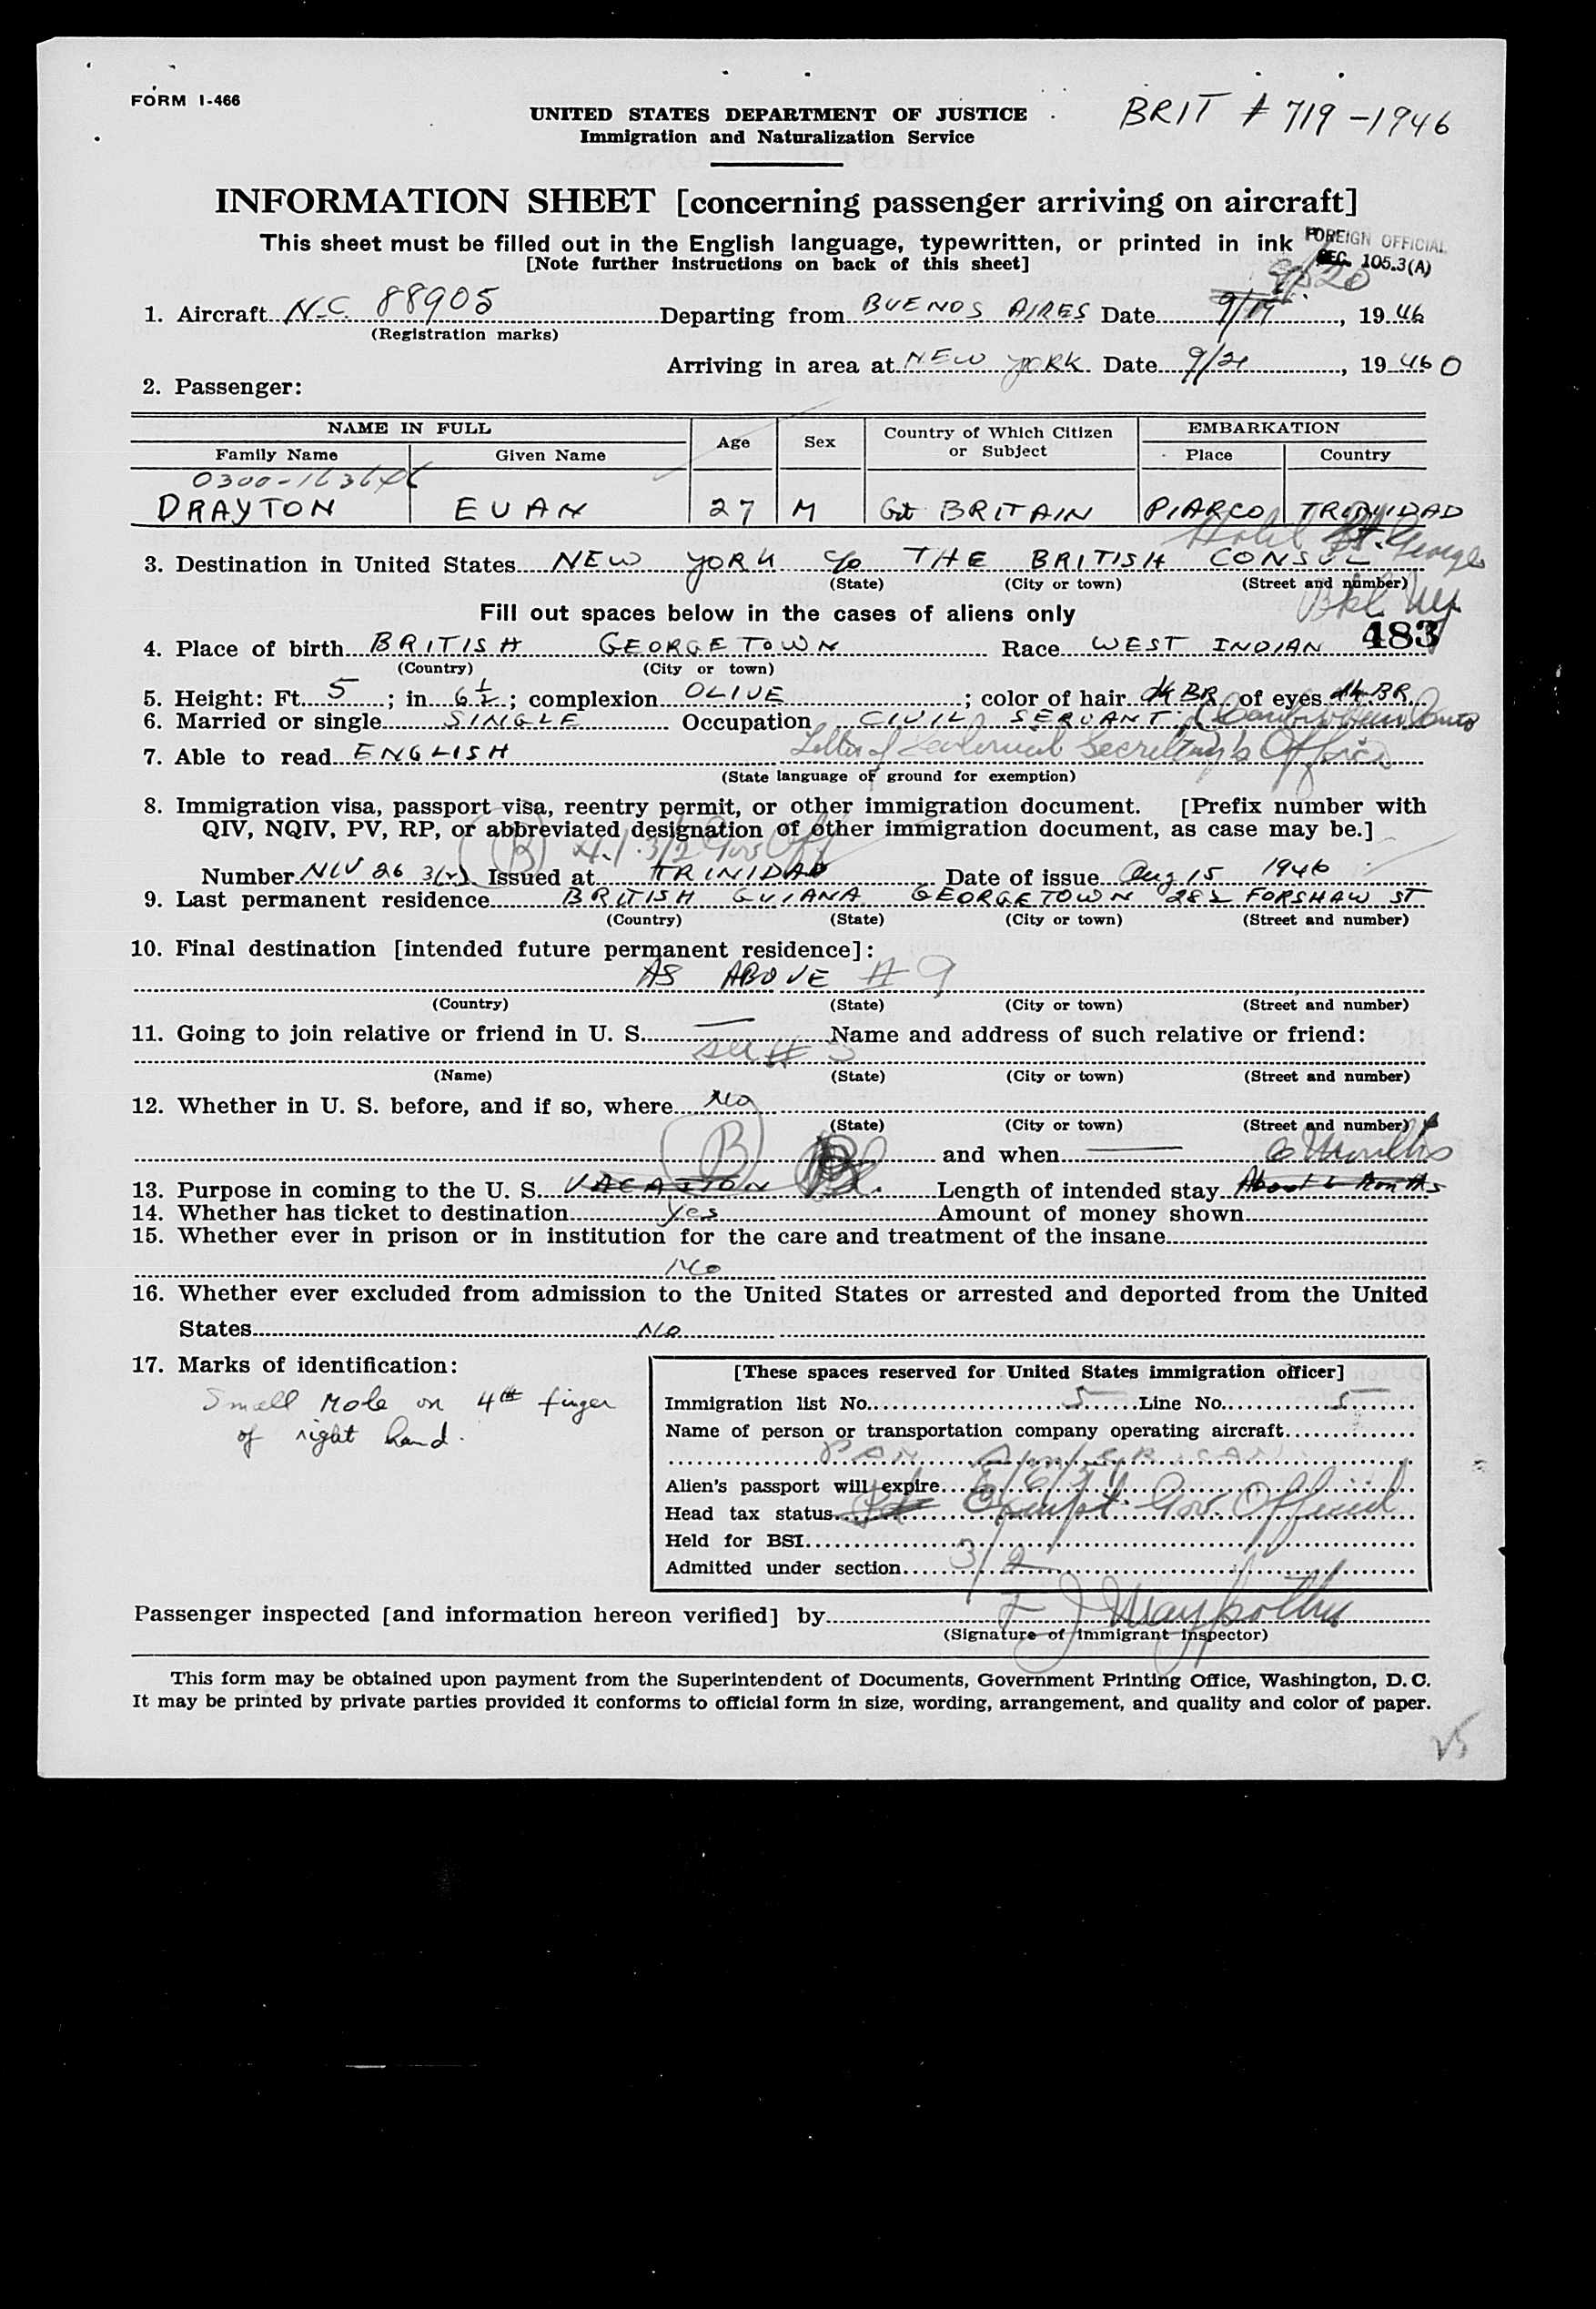 FORM I-466
BRIT # 719-1946
UNITED STATES DEPARTMENT OF JUSTICE
Immigration and Naturalization Service
INFORMATION SHEET [concerning passenger arriving on aircraft]
This sheet must be filled out in the English language, typewritten, or printed in ink
FOREIGN OFFICIAL
SEC. 105.3(A)
[Note further instructions on back of this sheet]
9/20
1. Aircraft N-C 88905 Departing from BUENOS AIRES Date 9/19, 1946
(Registration marks)
Arriving in area at NEW YORK Date 9/21, 1946 0
2. Passenger:
NAME IN FULL Age Sex Country of Which Citizen or Subject EMBARKATION
Family Name Given Name Place Country
0300-
DRAYTON EVAN 27 M Gt BRITAIN PIARCO TRINIDAD
Hotel St. George
3. Destination in United States NEW YORK c/o THE BRITISH CONSUL
(State) (City or town) (Street and number)
Bkl NY
Fill out spaces below in the cases of aliens only
483
4. Place of birth BRITISH GEORGETOWN Race WEST INDIAN
(Country) (City or town)
5. Height: Ft. 5; in. 6 1/2; complexion OLIVE; color of hair dk BR of eyes dk BR
6. Married or single SINGLE Occupation CIVIL SERVANT
7. Able to read ENGLISH Letter of Secretary's Office
(State language of ground for exemption)
8. Immigration visa, passport visa, reentry permit, or other immigration document. [Prefix number with
QIV, NQIV, PV, RP, or abbreviated designation of other immigration document, as case may be.]
(B) 3/2 Gov Off
Number NIV 26 3(2) Issued at TRINIDAD Date of issue Aug 15 1946
9. Last permanent residence BRITISH GUIANA GEORGETOWN 282 FORSHAW ST
(Country) (State) (City or town) (Street and number)
10. Final destination [intended future permanent residence]:
AS ABOVE # 9
(Country) (State) (City or town) (Street and number)
11. Going to join relative or friend in U. S. — Name and address of such relative or friend:
see # 3
(Name) (State) (City or town) (Street and number)
12. Whether in U. S. before, and if so, where No
(State) (City or town) (Street and number)
(B) and when — 6 Months
13. Purpose in coming to the U. S. VACATION Length of intended stay About 6 Months
14. Whether has ticket to destination Yes Amount of money shown
15. Whether ever in prison or in institution for the care and treatment of the insane
No
16. Whether ever excluded from admission to the United States or arrested and deported from the United
States No
17. Marks of identification:
Small Mole on 4th finger
of right hand.
[These spaces reserved for United States immigration officer]
Immigration list No. 5 Line No. 5
Name of person or transportation company operating aircraft
PAN AMERICAN
Alien's passport will expire 5/6/51
Head tax status Exempt. Gov. Official
Held for BSI
Admitted under section 3/2
Passenger inspected [and information hereon verified] by
(Signature of Immigrant Inspector)
This form may be obtained upon payment from the Superintendent of Documents, Government Printing Office, Washington, D. C.
It may be printed by private parties provided it conforms to official form in size, wording, arrangement, and quality and color of paper.
25